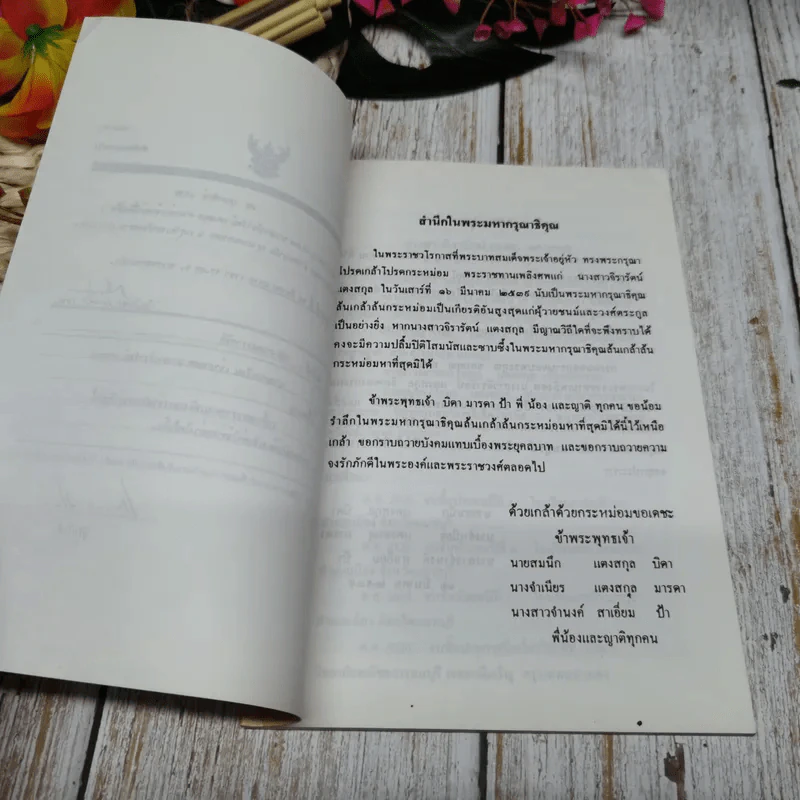 สำนึกในพระมหากรุณาธิคุณ
ในพระราชวโรกาสที่พระบาทสมเด็จพระเจ้าอยู่หัว ทรงพระกรุณา
โปรดเกล้าโปรดกระหม่อม พระราชทานเพลิงศพแก่ นางสาวจิรารัตน์
แตงสกุล ในวันเสาร์ที่ ๑๖ มีนาคม ๒๕๓๙ นับเป็นพระมหากรุณาธิคุณ
ล้นเกล้าล้นกระหม่อมเป็นเกียรติอันสูงสุดแก่ผู้วายชนม์และวงศ์ตระกูล
เป็นอย่างยิ่ง หากนางสาวจิรารัตน์ แตงสกุล มีญาณวิถีใดที่จะพึงทราบได้
คงจะมีความปลื้มปิติโสมนัสและซาบซึ้งในพระมหากรุณาธิคุณล้นเกล้าล้น
กระหม่อมหาที่สุดมิได้
ข้าพระพุทธเจ้า บิดา มารดา ป้า พี่ น้อง และญาติ ทุกคน ขอน้อม
รำลึกในพระมหากรุณาธิคุณล้นเกล้าล้นกระหม่อมหาที่สุดมิได้นี้ไว้เหนือ
เกล้า ขอกราบถวายบังคมแทบเบื้องพระยุคลบาท และขอกราบถวายความ
จงรักภักดีในพระองค์และพระราชวงศ์ตลอดไป
ด้วยเกล้าด้วยกระหม่อมขอเดชะ
ข้าพระพุทธเจ้า
นายสมนึก แตงสกุล บิดา
นางจำเนียร แตงสกุล มารดา
นางสาวจำนงค์ สาเอี่ยม ป้า
พี่น้องและญาติทุกคน